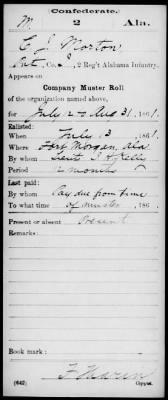 Confederate.
M. 2 Ala.
C J Morton
Pvt, Co. 2 Reg't Alabama Infantry.
Appears on
Company Muster Roll
of the organization named above,
for July 2 to Aug 31, 1861.
Enlisted:
When July 13, 1861.
Where Fort Morgan, Ala
By whom Lieut
Period 12 months
Last paid:
By whom Pay due from time
To what time of muster, 186
Present or absent Present
Remarks:
Book mark:
(642) Copyist.